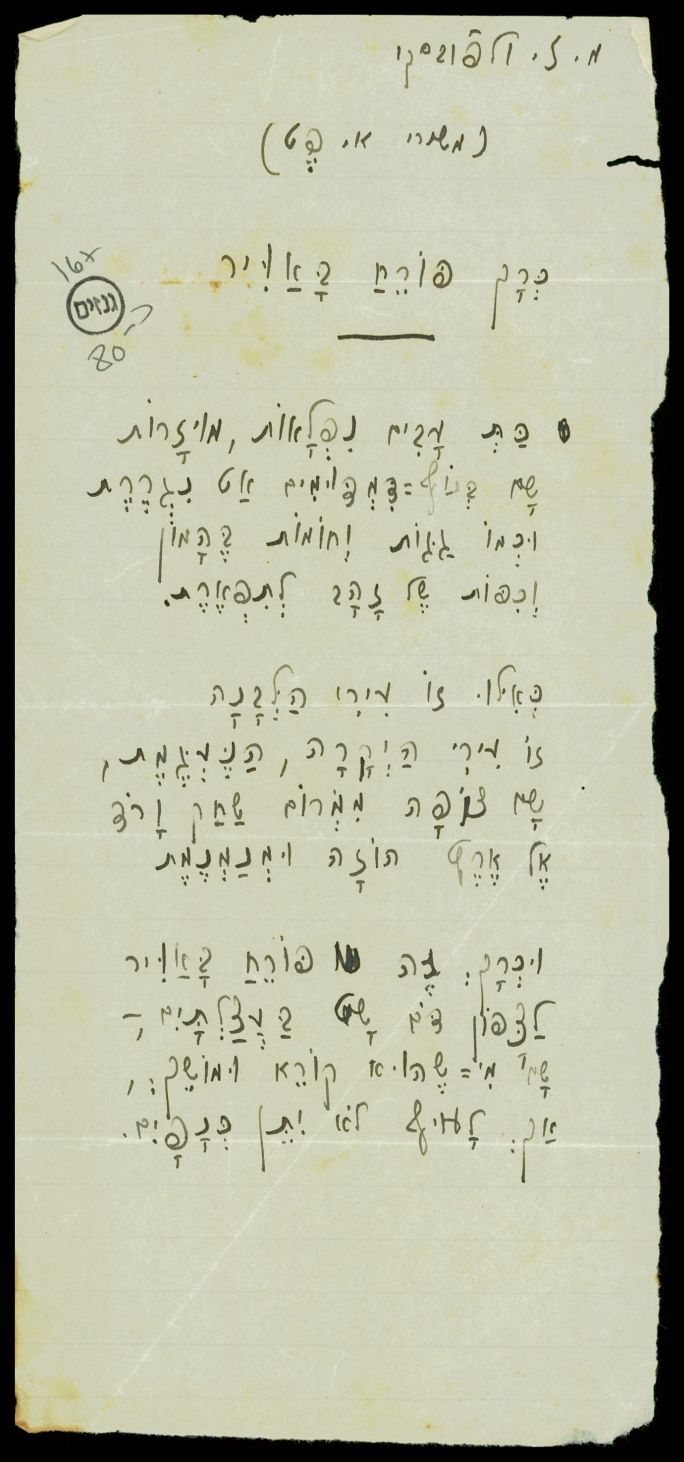 מ. ז. ולפובסקי
(משירי א. פֶט)
כְּרָךְ פּוֹרֵחַ בָּאֲוִיר
167
גנזים
80
כַּת עָבִים נִפְלָאוֹת, מוּזָרוֹת
שָׁם בְּנוֹף=דִּמְדּוּמִים אַט נִגְרֶרֶת
וּכְמוֹ גַגּוֹת וְחוֹמוֹת בֶּהָמוֹן
וְכִפּוֹת שֶׁל זָהָב לְתִפְאֶרֶת.
כְּאִילוּ זוֹ עִירִי הַלְּבָנָה
זוֹ עִירִי הַיְקָרָה, הַנֶּעְגֶּמֶת,
שָׁם צוֹפָה מִמְּרוֹם שַׁחַק וָרֹד
אֶל אֶרֶץ הוֹזָה וּמְנַמְנֶמֶת
וּכְרָךְ זֶה פּוֹרֵחַ בָּאֲוִיר
לַצָּפוֹן דֹּם שָׁט בַּעֲצַלְתָּיִם,–
שָׁם מִי=שֶׁהוּא קוֹרֵא וּמוֹשֵׁךְ,
אַךְ לָעוּף לֹא יִתֵּן כְּנָפָיִם.